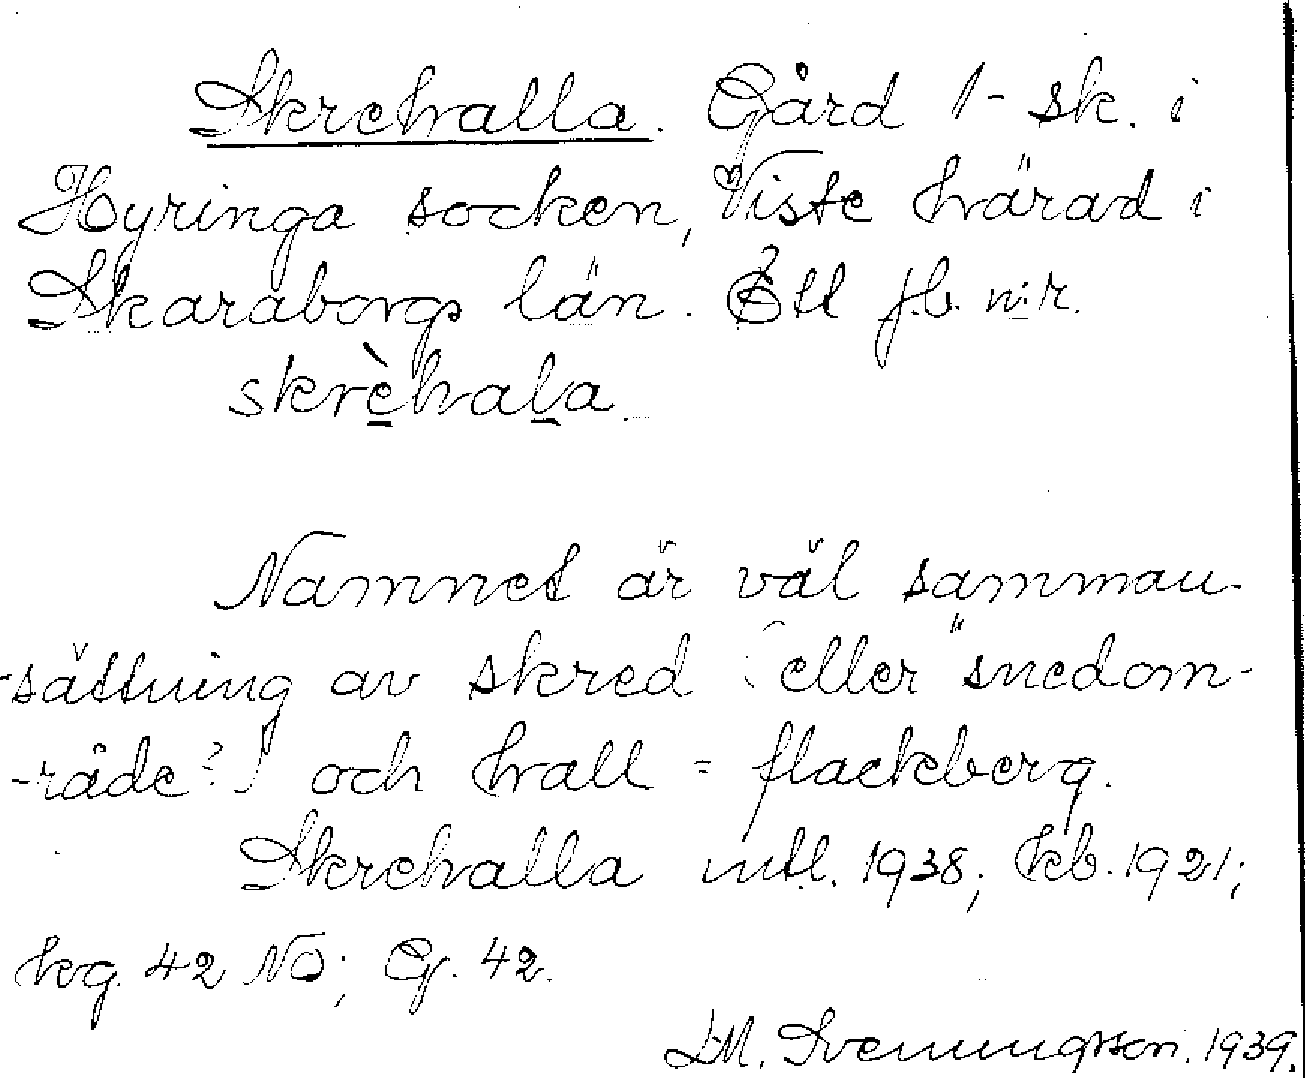 Skrehalla. Gård 1- sk. i
Hyringa socken, Viste härad i
Skaraborgs län. Ett f.b. n:r.
skrèhala.
Namnet är väl samman-
-sättning av skred (eller snedom-
-råde?) och hall = flackberg.
Skrehalla mtl. 1938; kb. 1921;
kg. 42 NO; G. 42.
Svenungsson. 1939.